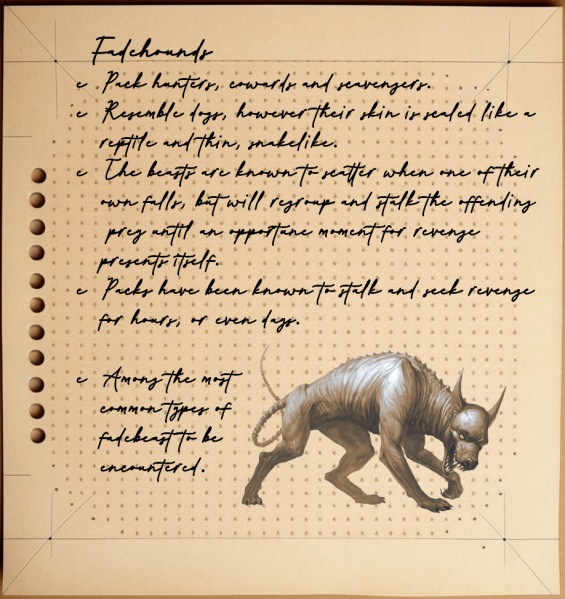 Fadehounds
Pack hunters, cowards and scavengers.
Resemble dogs, however their skin is scaled like a
reptile and thin, snakelike.
The beasts are known to scatter when one of their
own falls, but will regroup and stalk the offending
prey until an opportune moment for revenge
presents itself.
Packs have been known to stalk and seek revenge
for hours, or even days.
Among the most
common types of
fadebeast to be
encountered.